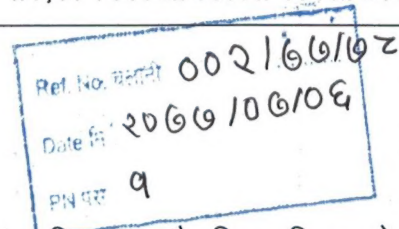 Ref. No. चलानी ००२/७७/७८
Date मि २०७७/०७/०६
PN पस १